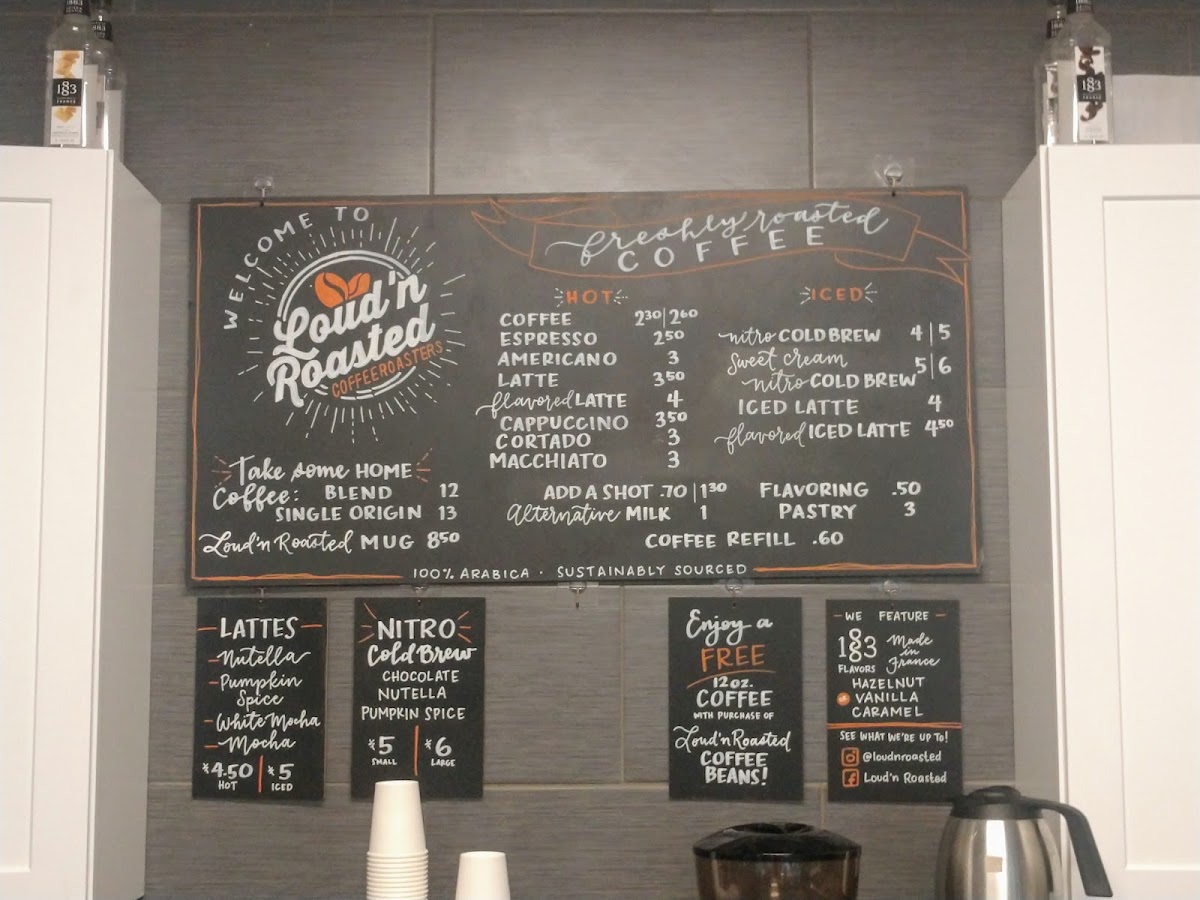 WELCOME TO
Loud'n
Roasted
COFFEEROASTERS
Take some HOME
Coffee: BLEND 12
SINGLE ORIGIN 13
Loud'n Roasted MUG 8⁵⁰
freshly roasted
COFFEE
HOT
COFFEE 2³⁰|2⁶⁰
ESPRESSO 2⁵⁰
AMERICANO 3
LATTE 3⁵⁰
flavored LATTE 4
CAPPUCCINO 3⁵⁰
CORTADO 3
MACCHIATO 3
ICED
nitro COLD BREW 4|5
Sweet cream
nitro COLD BREW 5|6
ICED LATTE 4
flavored ICED LATTE 4⁵⁰
ADD A SHOT .70|1³⁰
Alternative MILK 1
FLAVORING .50
PASTRY 3
COFFEE REFILL .60
100% ARABICA · SUSTAINABLY SOURCED
- LATTES -
- Nutella
- Pumpkin
Spice
- White Mocha
- Mocha
*4.50 | *5
HOT ICED
NITRO
Cold Brew
CHOCOLATE
NUTELLA
PUMPKIN SPICE
*5 | *6
SMALL LARGE
Enjoy a
FREE
12oz.
COFFEE
WITH PURCHASE OF
Loud'n Roasted
COFFEE
BEANS!
- WE FEATURE -
1883 Made
in
FLAVORS France
HAZELNUT
VANILLA
CARAMEL
SEE WHAT WE'RE UP TO!
@loudnroasted
Loud'n Roasted
1883
FRANCE
1883